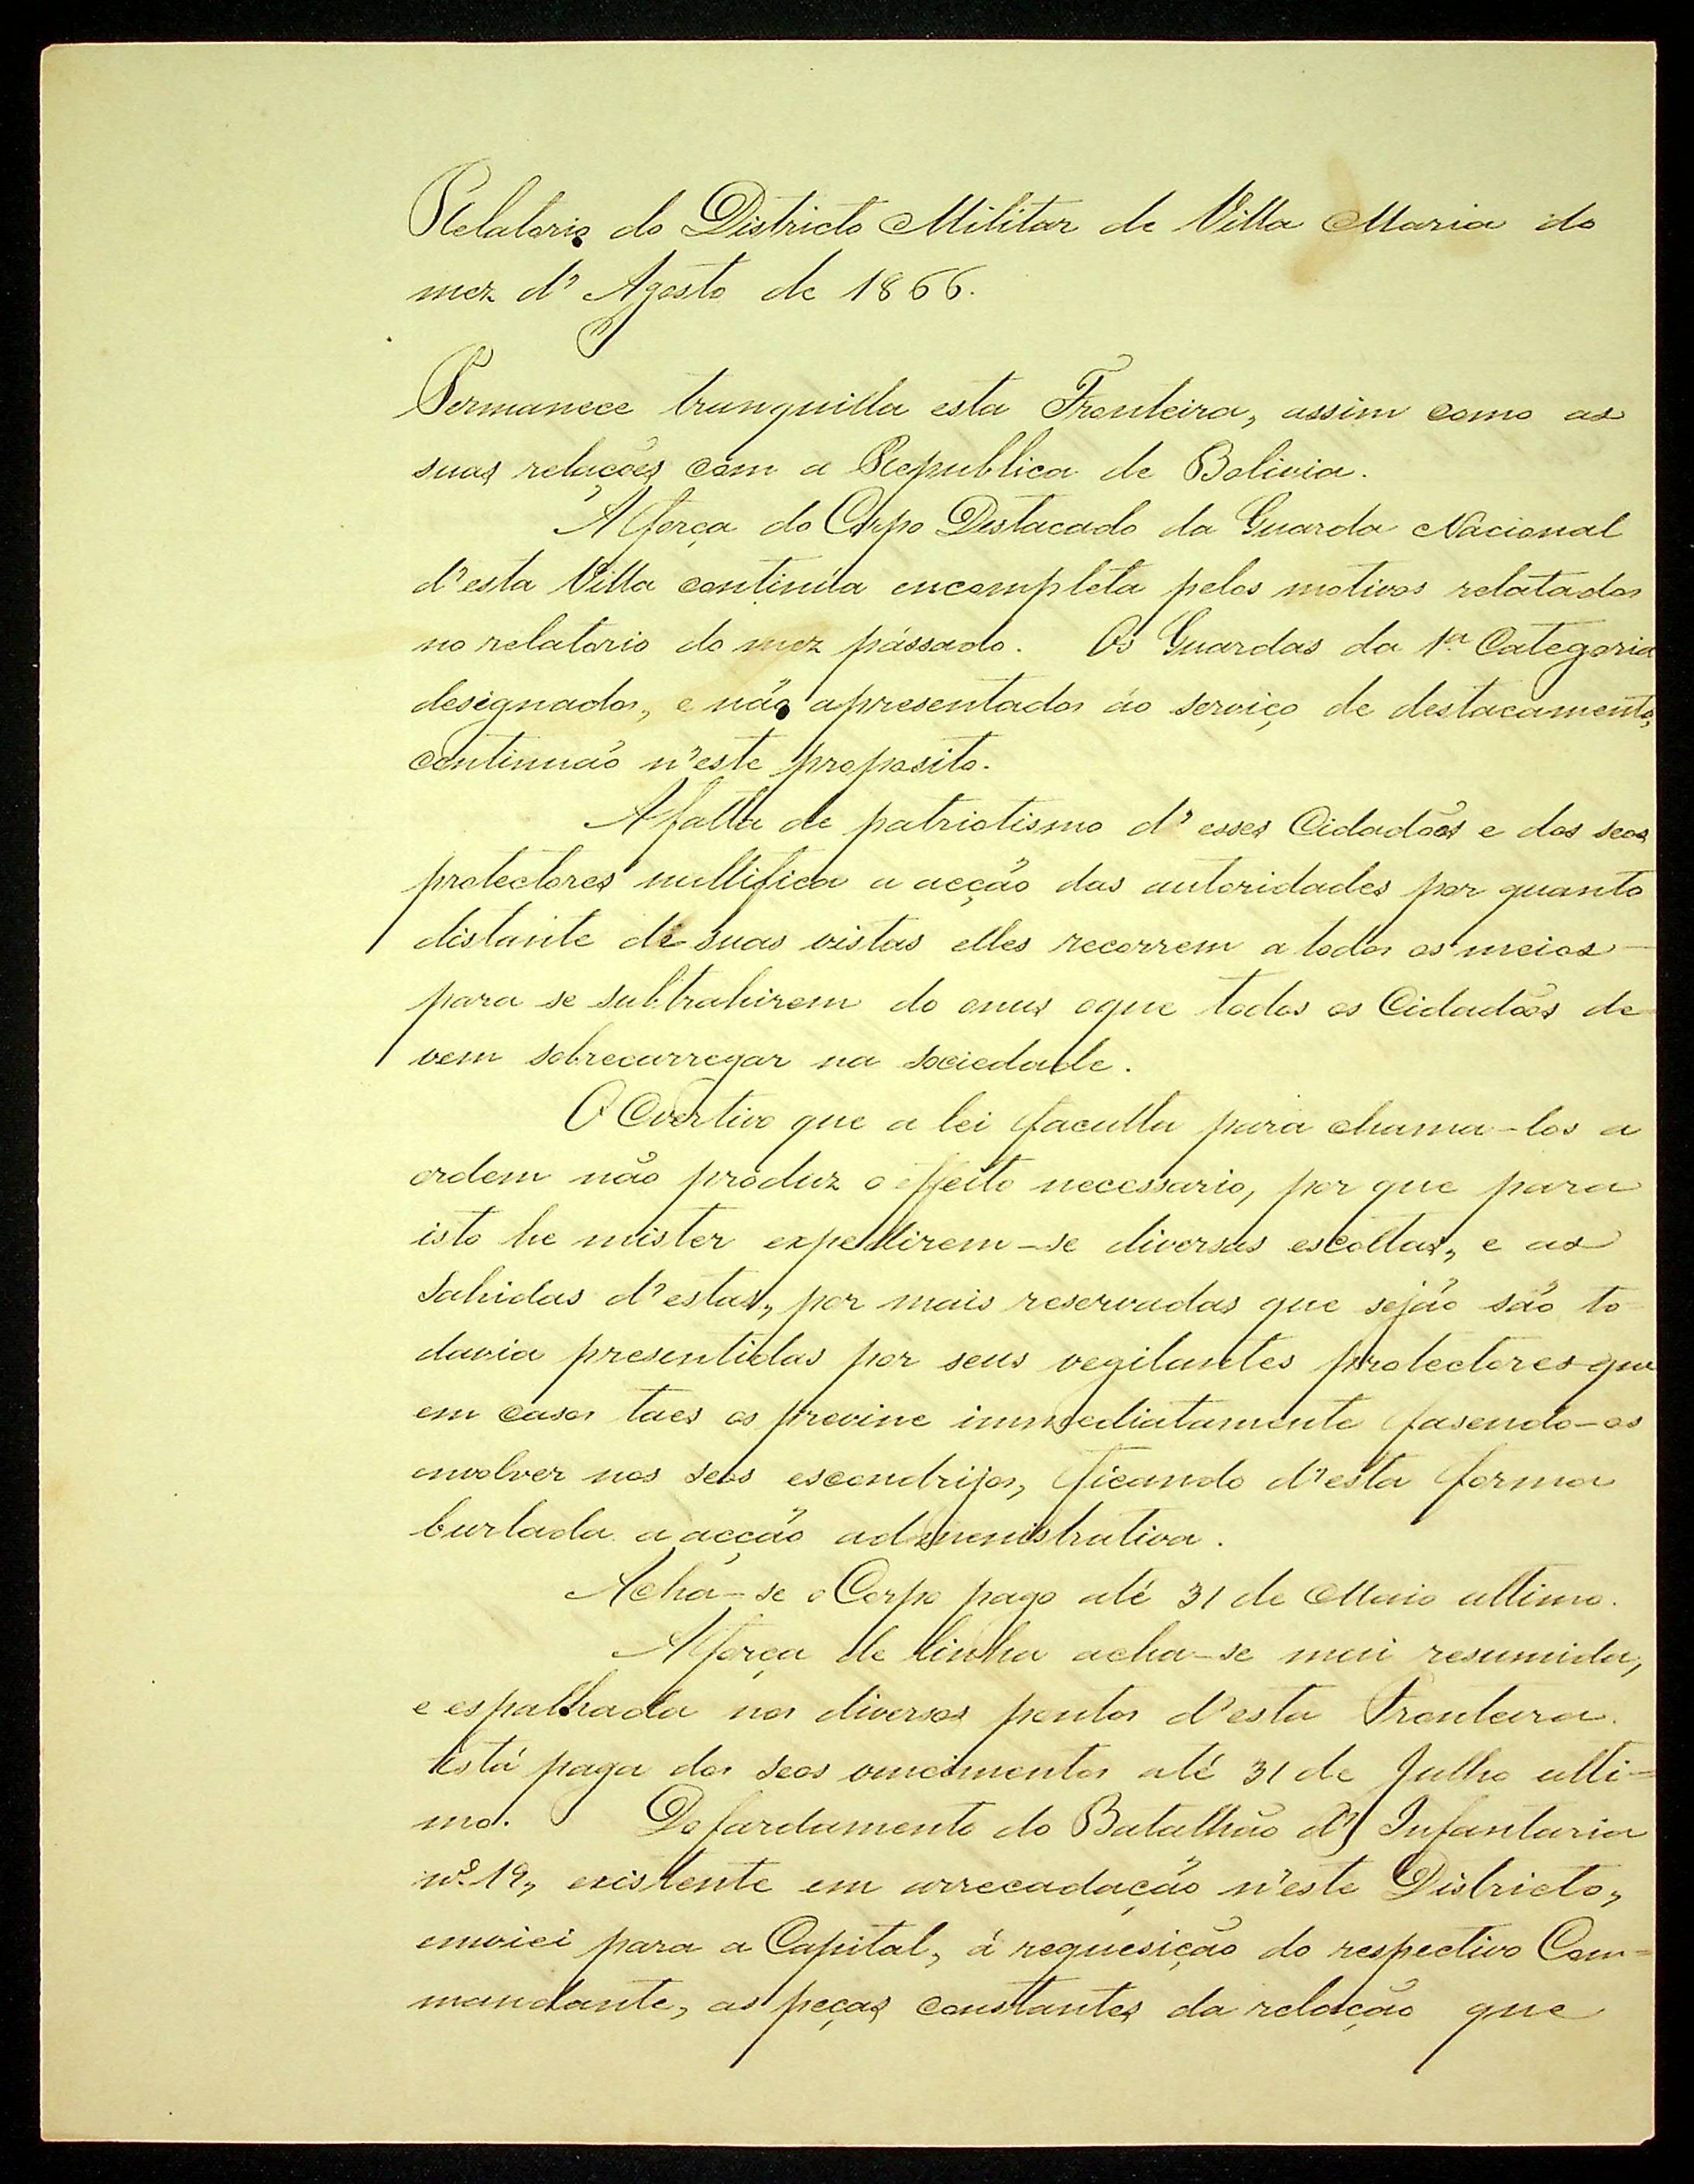 Relatorio do Districto Militar de Villa Maria do
mez d' Agosto de 1866.
Permanece tranquilla esta Fronteira, assim como as
suas relações com a Republica de Bolivia.
A força do Corpo Destacado da Guarda Nacional
d'esta Villa continúa encompleta pelos motivos relatados
no relatorio do mez pássado. Os Guardas da 1ª Categoria
designados, e não apresentados áo serviço de destacamento,
continuão n'este proposito.
A falta de patriotismo d' esses Cidadãos e dos seos
protectores nullifica a acção das autoridades por quanto
distante de suas vistas elles recorrem a todos os meios
para se subtrahirem do onus oque todos os Cidadãos de
vem sobrecarregar na sociedade.
O Cvertivo que a lei faculta para chama-los a
ordem não produz o effeito necessario, por que para
isto he mister expedirem-se diversas escoltas, e as
sahidas d'estas, por mais reservadas que sejão são to
davia presentidas por seus vegilantes protectores que
em casos taes os previne immediatamente fasendo-os
envolver nos seos escondrijos, ficando d'esta forma
burlada a acção admenistrativa.
Acha-se o Corpo pago até 31 de Maio ultimo.
A força de linha acha-se mui resumida,
e espalhada nos diversos pontos d'esta Fronteira.
Está paga dos seos vencimentos até 31 de Julho ulti=
mo. Do fardamento do Batalhão d' Infantaria
nº 19, existente em arrecadação n'este Districto,
enviei para a Capital, á requesição do respectivo Com=
mandante, as peças constantes da relação que